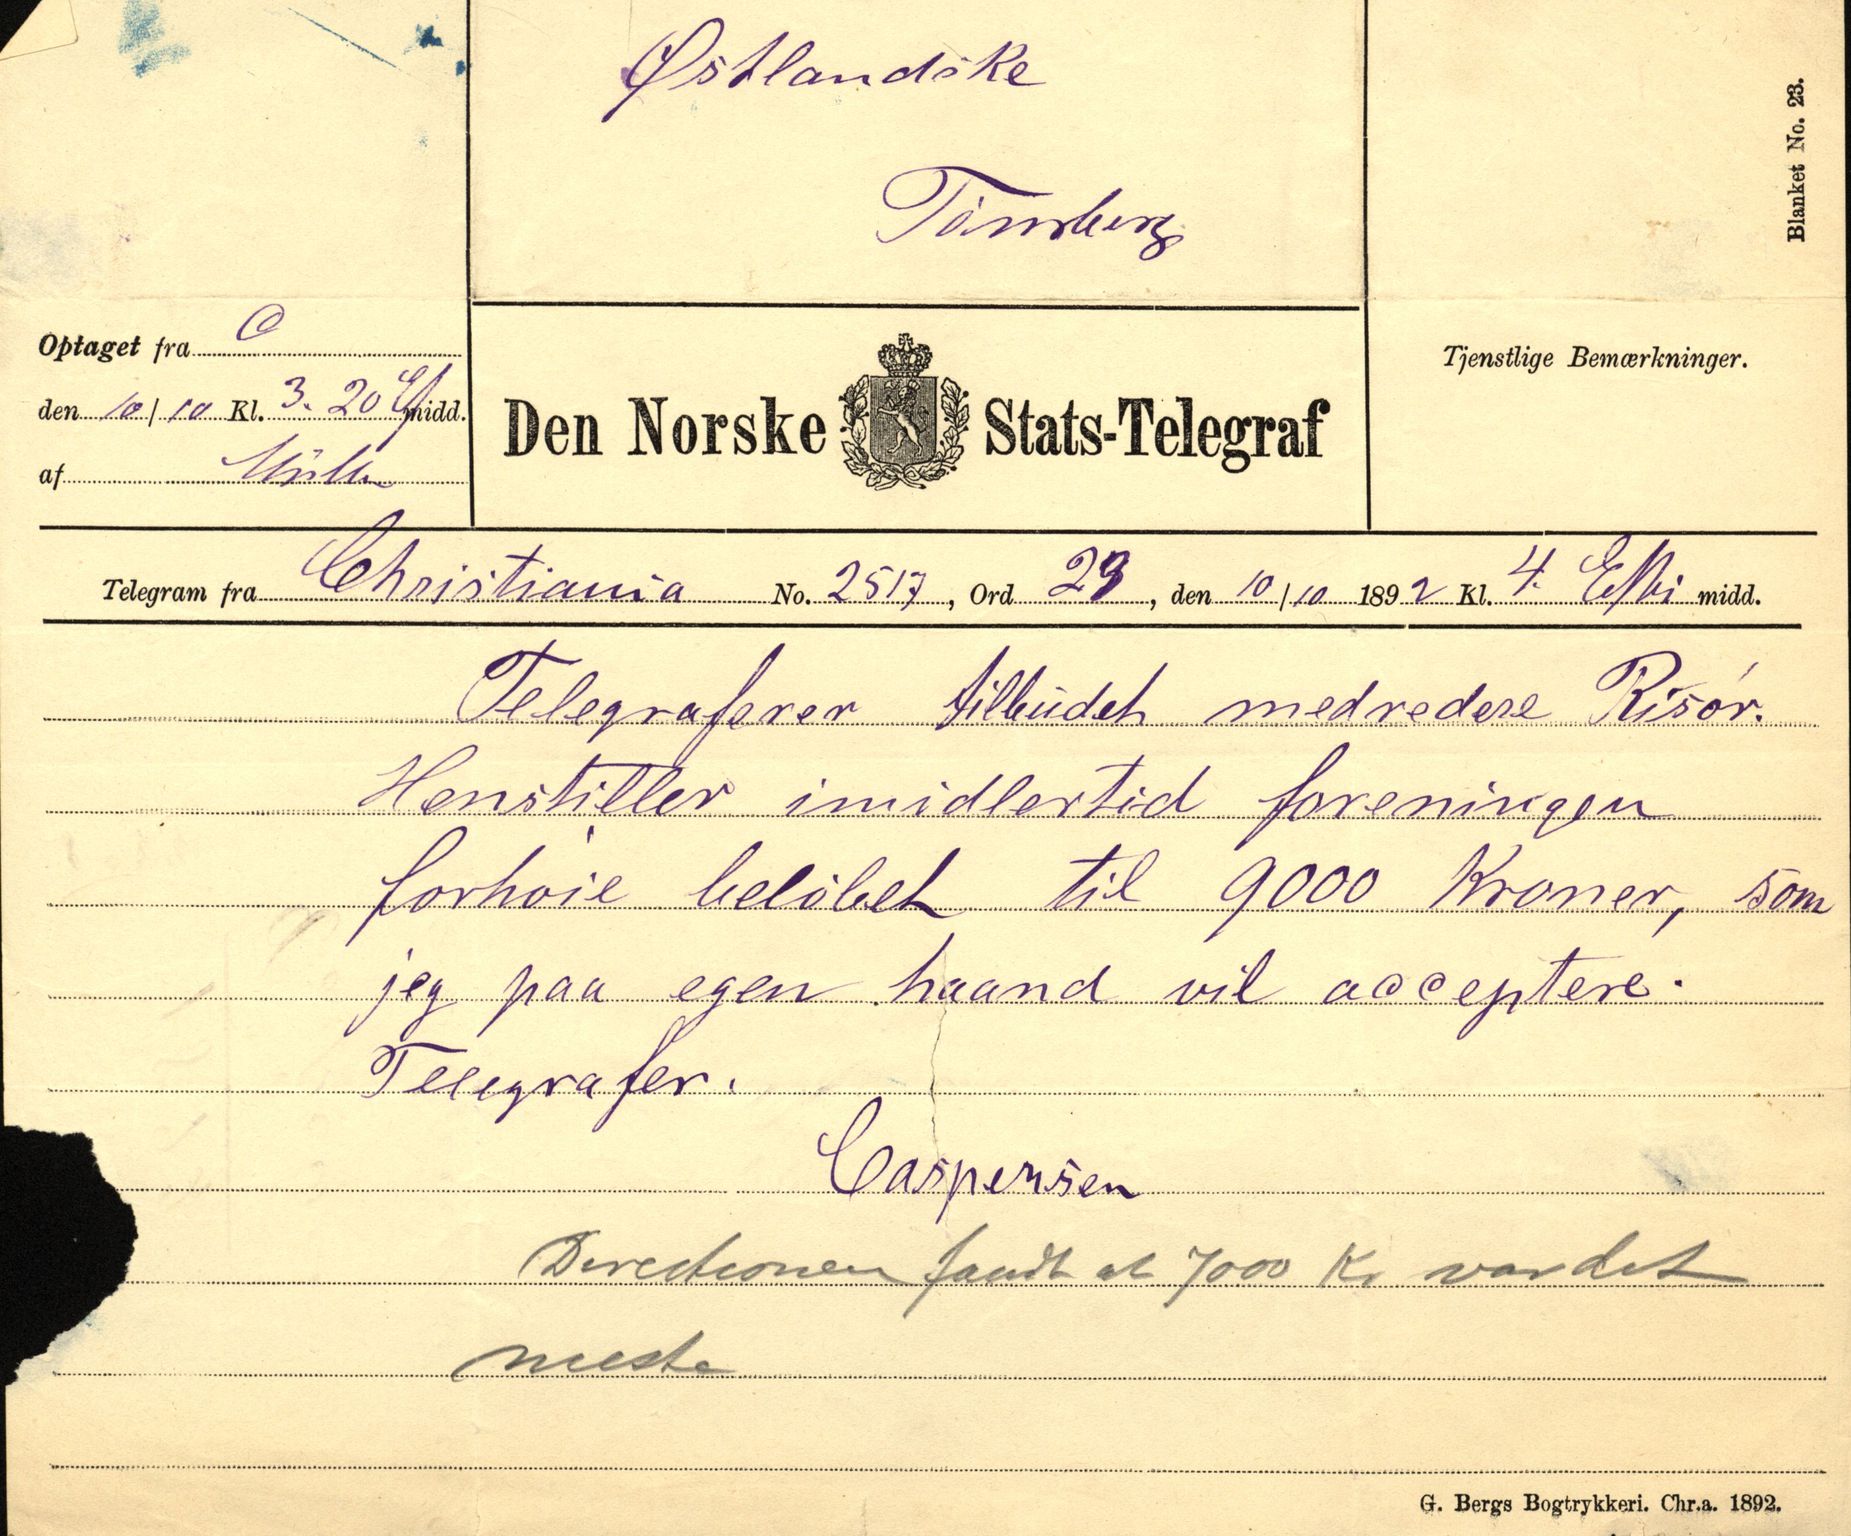 Østlandske
Tönsberg
Blanket No. 23.
Optaget fra C
den 10/10 Kl. 3.20 Ef midd.
af
Den Norske Stats-Telegraf
Tjenstlige Bemærkninger.
Telegram fra Christiania No. 2517, Ord 29, den 10/10 1892 Kl. 4. Efti midd.
Telegraferer tilbudet medredere Risör.
Henstiller imidlertid foreningen
forhöie belöbet til 9000 Kroner, som
jeg paa egen haand vil acceptere.
Telegrafer.
Caspersen
Directionen fandt at 7000 Kr var det
meste
G. Bergs Bogtrykkeri. Chr.a. 1892.